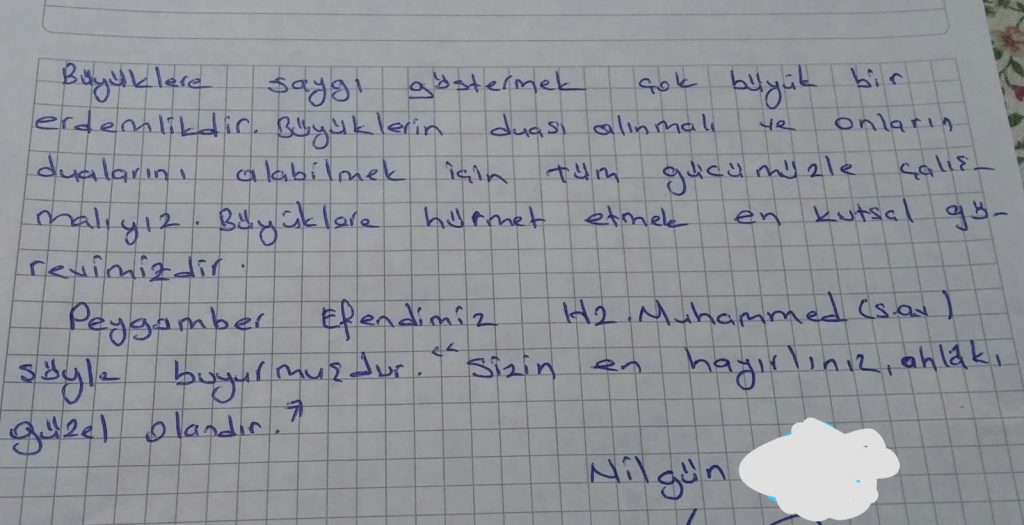 Büyüklere saygı göstermek çok büyük bir
erdemlikdir. Büyüklerin duası alınmalı ve onların
dualarını alabilmek için tüm gücümüzle çalış-
malıyız. Büyüklere hürmet etmek en kutsal gö-
revimizdir.
Peygamber Efendimiz Hz. Muhammed (sav)
şöyle buyurmuşdur. "Sizin en hayırlınız, ahlâkı
güzel olandır."
Nilgün